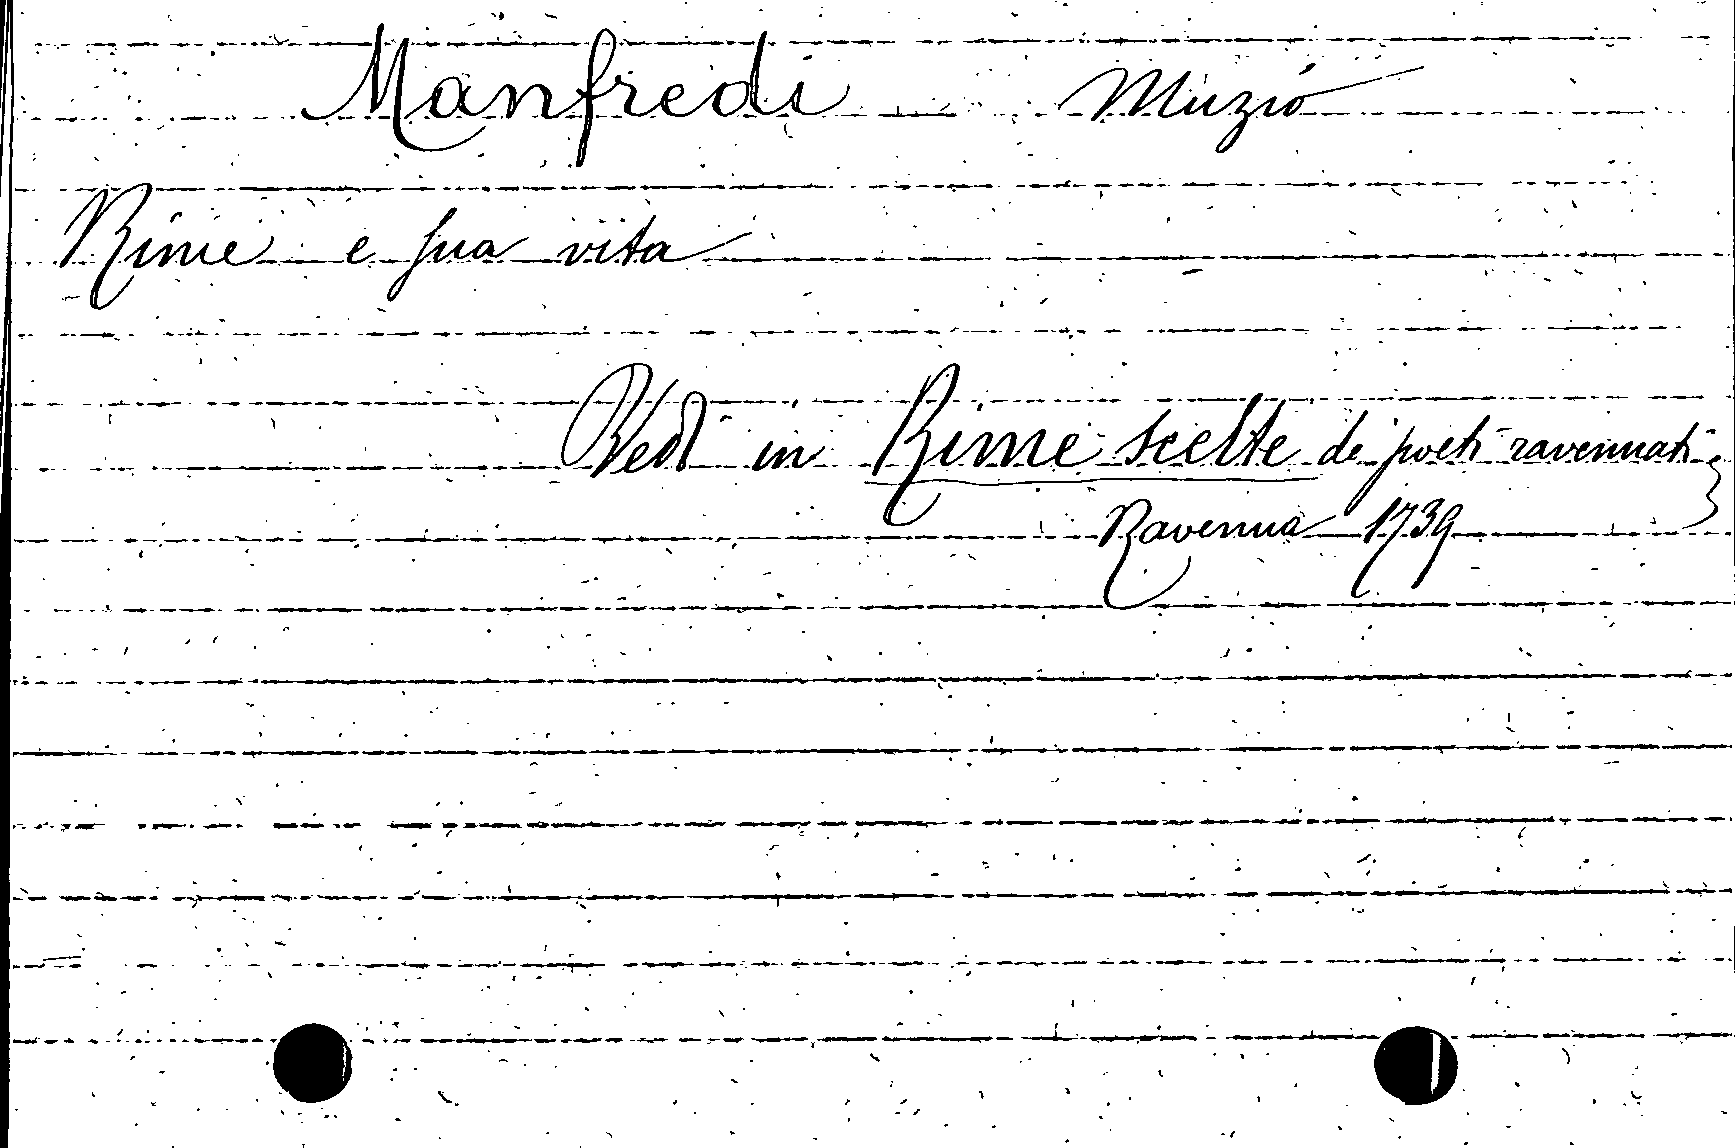 Manfredi Muzio
Rime e sua vita
Vedi in Rime scelte de' poeti ravennati
Ravenna 1739